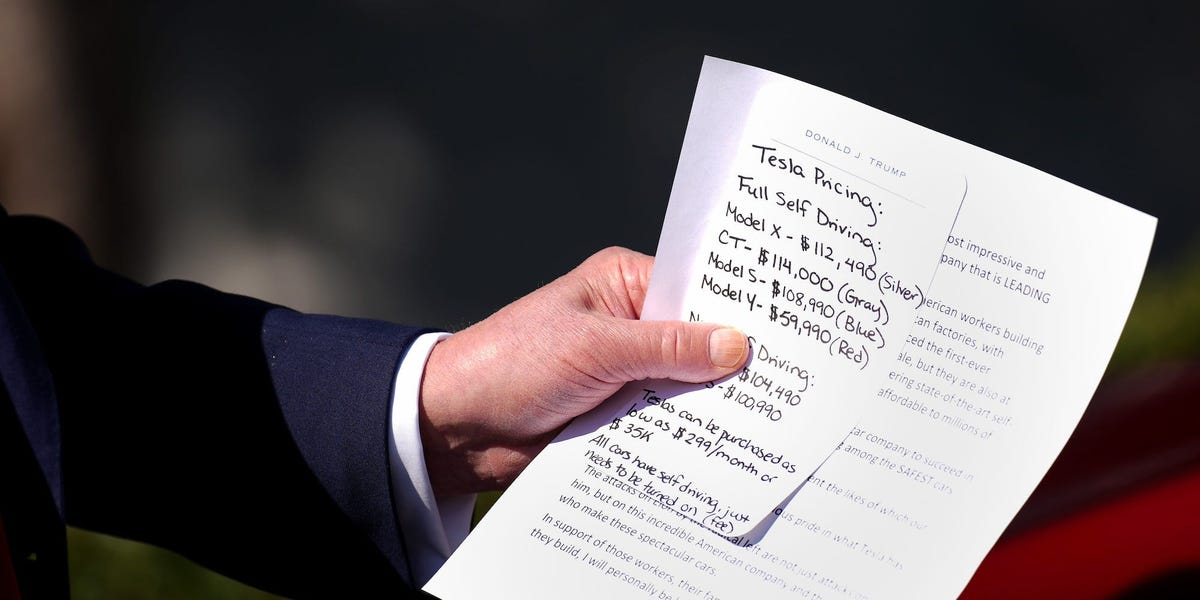 DONALD J. TRUMP
Tesla Pricing:
Full Self Driving:
Model X - $112,490 (Silver)
CT - $114,000 (Gray)
Model S - $108,990 (Blue)
Model Y - $59,990 (Red)
Driving:
$104,490
- $100,990
Teslas can be purchased as
low as $299/month or
$35K
All cars have self driving, just
needs to be turned on (fee)
ost impressive and
pany that is LEADING
erican workers building
an factories, with
ced the first-ever
ale, but they are also at
ering state-of-the-art self
affordable to millions of
ar company to succeed in
among the SAFEST cars
ent the likes of which our
ous pride in what Tesla has
The attacks on left are not just attacks on
him, but on this incredible American company and the
who make these spectacular cars.
In support of those workers, their
they build, I will personally be